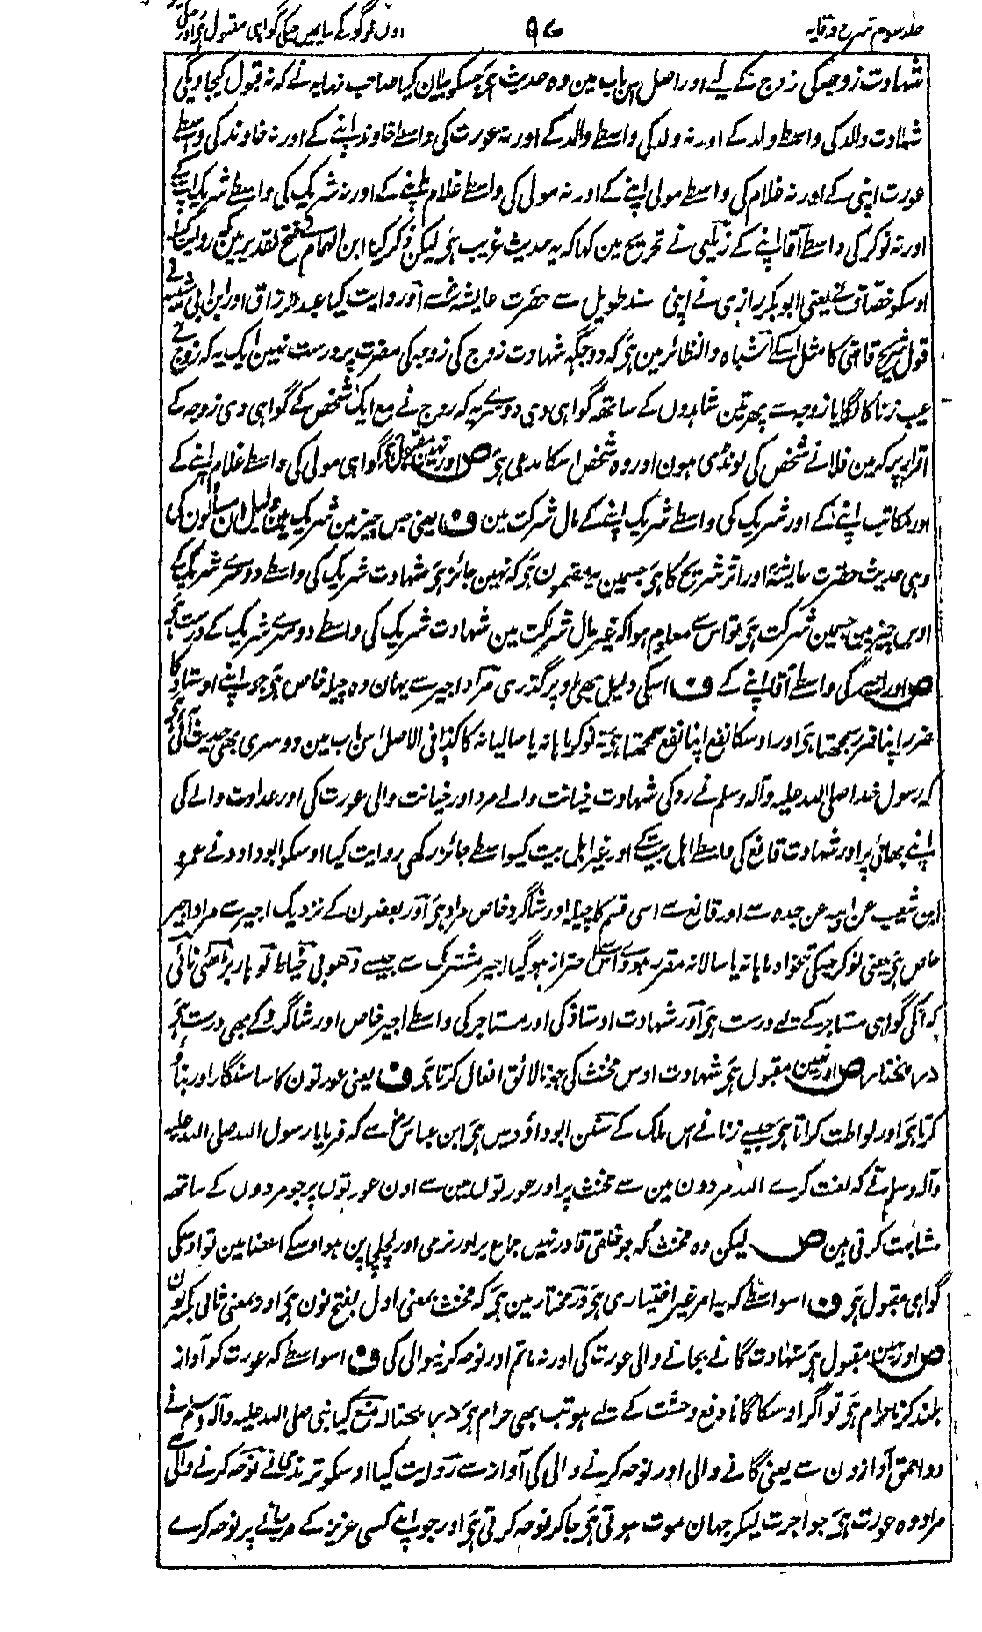 جلد سوم شرح وقایہ
۹۷
اون لوگوں کے بیان میں جنکی گواہی مقبول ہی اور جنکی
شہادت زوجہ کی زوج کے لیے اور اصل اس باب مین وہ حدیث ہی جسکو بیان کیا صاحب ہدایہ نے کہ نہ قبول کیجاویگی
شہادت والد کی واسطے ولد کے اور نہ ولد کی واسطے والد کے اور نہ عورت کی واسطے خاوند اپنے کے اور نہ خاوند کی واسطے
عورت اپنی کے اور نہ غلام کی واسطے مولی اپنے کے اور نہ مولی کی واسطے غلام اپنے کے اور نہ شریک کی واسطے شریک اپنے کے
اور نہ نوکر کی واسطے آقا اپنے کے زیلعی نے تخریج مین کہا کہ یہ حدیث غریب ہی لیکن ذکر کیا ابن الہمام نے فتح القدیر مین کہ روایت کیا
اوسکو خصاف نے یعنی ابو بکر رازی نے اپنی سند طویل سے حضرت عایشہ سے اور روایت کیا عبد الرزاق اور ابن ابی شیبہ نے
قول شریح قاضی کا مثل اسکے اشباہ والنظائر مین ہی کہ دو جگہ شہادت زوج کی زوجہ کی مضرت پر درست نہین ایک یہ کہ زوج نے
عیب زنا کا لگایا زوجہ سے پھر تین شاہدوں کے ساتھ گواہی دی دوسرے یہ کہ زوج نے مع ایک شخص کے گواہی دی زوجہ کے
اقرار پر کہ مین فلانے شخص کی لونڈی ہون اور وہ شخص اسکا مدعی ہی ص اور نہین مقبول ہی گواہی مولی کی واسطے غلام اپنے کے
اور مکاتب اپنے کے اور شریک کی واسطے شریک اپنے کے مال شرکت مین ف یعنی جس چیز مین شریک ہین دلیل ان مسئلون کی
وہی حدیث حضرت عایشہ اور اثر شریح کا ہی جسمین یہ مضمون ہی کہ نہین جائز ہی شہادت شریک کی واسطے دوسرے شریک کے
اوس چیز مین جسمین شرکت ہی تو اس سے معلوم ہوا کہ غیر مال شرکت مین شہادت شریک کی واسطے دوسرے شریک کے درست ہی
ص اور اجیر کی واسطے آقا اپنے کے ف اسکی دلیل بھی اوپر گذری مراد اجیر سے یہان وہ چیلہ خاص ہی جو اپنے اوستاد کا
ضرر اپنا ضرر سمجھتا ہی اور اوسکا نفع اپنا نفع سمجھتا ہی نہ نوکر ماہانہ یا سالیانہ کا کذا فی الاصل اس باب مین دوسری بھی حدیث آئی ہی
کہ رسول خدا صلی اللہ علیہ وآلہ وسلم نے رد کی شہادت خیانت والے مرد اور خیانت والی عورت کی اور عداوت والے کی
اپنے بھائی پر اور شہادت قانع کی واسطے اہل بیت کے اور غیر اہل بیت کیواسطے جائز رکھی روایت کیا اوسکو ابو داود نے عمرو
ابن شعیب عن ابیہ عن جدہ سے اور قانع سے اسی قسم کا چیلا اور شاگرد خاص مراد ہی اور بعضون کے نزدیک اجیر سے مراد اجیر
خاص ہی یعنی نوکر جسکی تنخواہ ماہانہ یا سالانہ مقرر ہو اس سے احتراز ہو گیا اجیر مشترک سے جیسے دھوبی خیاط لوہار بڑھئی نائی
کہ انکی گواہی مستاجر کے لیے درست ہی اور شہادت اوستاذ کی اور مستاجر کی واسطے اجیر خاص اور شاگرد کے بھی درست ہی
در مختار ص اور نہین مقبول ہی شہادت اوس مخنث کی جو نالائق افعال کرتا ہی ف یعنی عورتون کا سا سنگار اور بناؤ
کرتا ہی اور لواطت کراتا ہی جیسے زنانے اس ملک کے سنن ابو داؤد میں ہی ابن عباس سے کہ فرمایا رسول اللہ صلی اللہ علیہ
وآلہ وسلم نے کہ لعنت کرے اللہ مردون مین سے مخنث پر اور عورتوں مین سے اون عورتوں پر جو مردوں کے ساتھ
مشابہت کرتی ہین ص لیکن وہ مخنث کہ جو خلقی قادر نہیں جماع پر اور نرمی اور لچلچی پن ہو اوسکے اعضا مین تو اوسکی
گواہی مقبول ہی ف اسواسطے کہ یہ امر غیر اختیاری ہی در مختار مین ہی کہ مخنث بمعنی اول بفتح نون ہی اور بمعنی ثانی بکسر نون
ص اور نہین مقبول ہی شہادت گانے بجانے والی عورت کی اور نہ ماتم اور نوحہ کرنیوالی کی ف اسواسطے کہ عورت کو آواز
بلند کرنا حرام ہی تو اگر اوسکا گانا دفع وحشت کے لیے ہو تب بھی حرام ہی در مختار منع کیا نبی صلی اللہ علیہ وآلہ وسلم نے
دو احمق آوازون سے یعنی گانے والی اور نوحہ کرنے والی کی آواز سے روایت کیا اوسکو ترمذی نے نوحہ کرنے والی سے
مراد وہ عورت ہی جو اجرت لیکر جہان موت ہوتی ہی جا کر نوحہ کرتی ہی اور جو اپنے کسی عزیز کے مرجانے پر نوحہ کرے